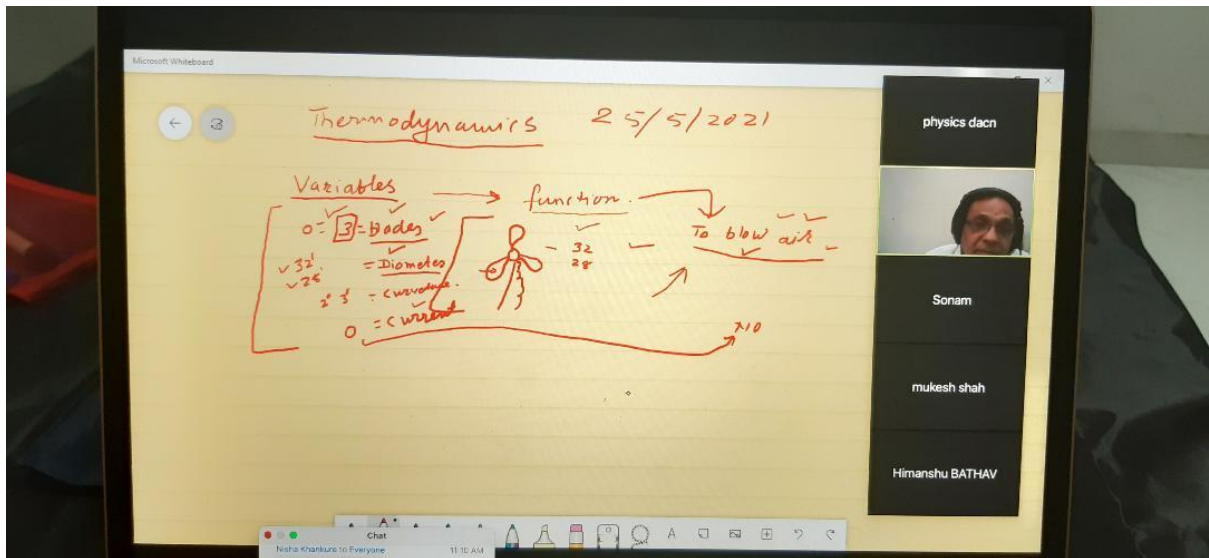 Microsoft Whiteboard
3
Thermodynamics 25/5/2021
Variables → function.
0 = 3 = Bodes
To blow air
32' = Diometes
- 32 -
28
28
2° 3' = Curvature.
0 = Current
x10
physics dacn
Sonam
mukesh shah
Himanshu BATHAV
Chat
Nisha Khankure to Everyone 11:10 AM